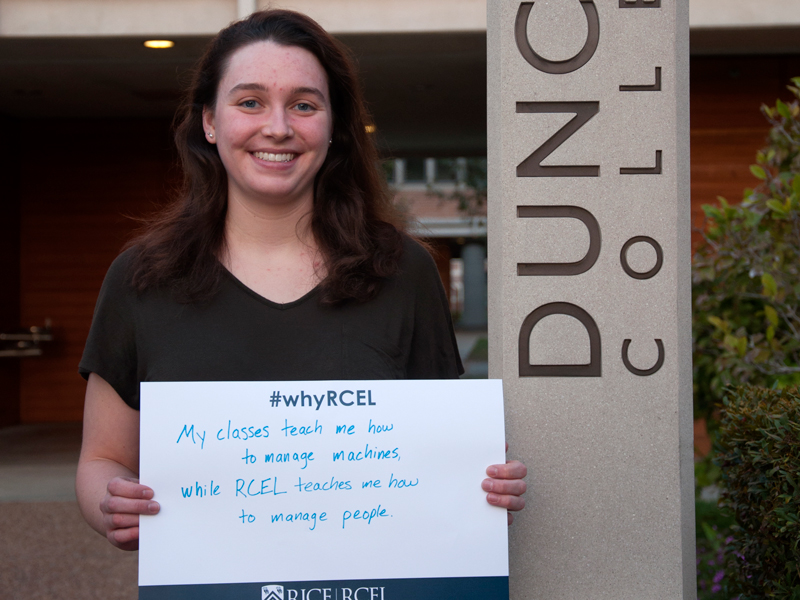 #whyRCEL
My classes teach me how
to manage machines,
while RCEL teaches me how
to manage people.
RICE | RCEL
DUNC
COLLE